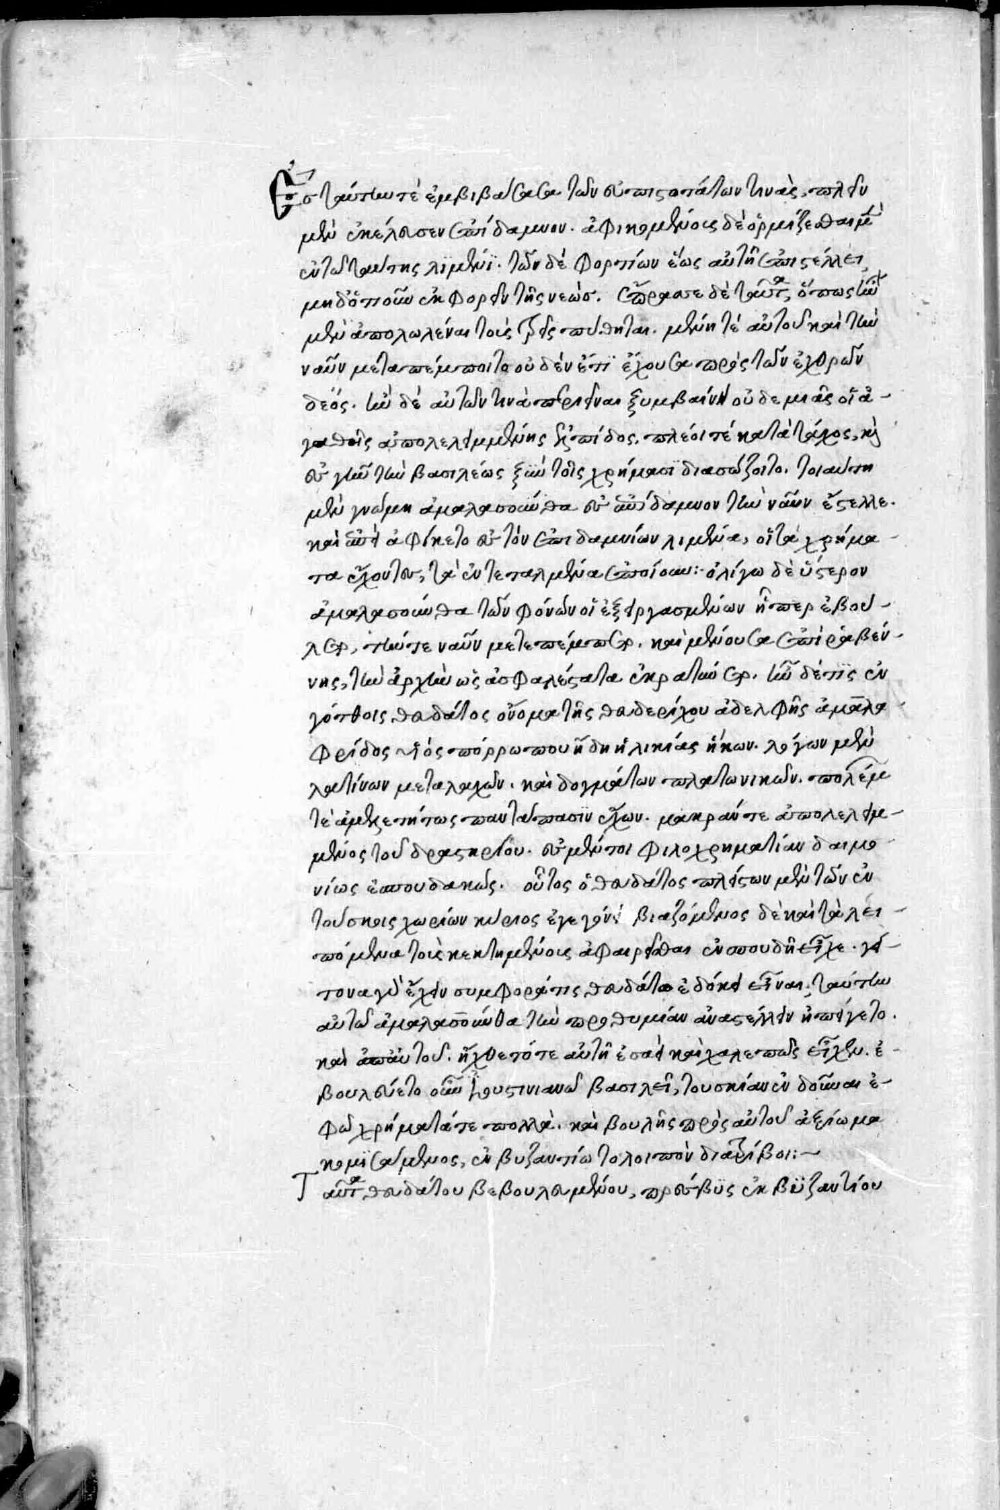 Ἐς ταύτην τὲ ἐμβιβάσασα τῶν οἱ πιστοτάτων τινὰς, πλεῖν
μὲν ἐκέλευσεν ἐπίδαμνον. ἀφικομένοις δὲ ὁρμίζεσθαι μὲν
ἐν τῶ ταύτης λιμένι. τῶν δὲ φορτίων ἕως αὐτὴ ἐπιστέλλει
μηδοτιοῦν ἐκφορεῖν τῆς νεώς. ἔπρασσε δὲ ταῦτα, ὅπως ἢν
μὲν ἀπολωλέναι τοὺς τρεῖς πύθηται. μένῃ τὲ αὐτοῦ καὶ τὴν
ναῦν μεταπέμποιτο οὐδὲν ἔτι ἔχουσα πρὸς τῶν ἐχθρῶν
δέος. ἢν δὲ αὐτῶν τινὰ περιεῖναι ξυμβαίνῃ οὐδεμιᾶς οἱ ἀ-
γαθῆς ἀπολελειμμένης ἐλπίδος. πλέοι τὲ κατὰ τάχος, καὶ
ἐς γῆν τὴν βασιλέως ξὺν τοῖς χρήμασι διασώζοιτο. τοιαύτη
μὲν γνώμη ἀμαλασοῦνθα ἐς ἐπίδαμνον τὴν ναῦν ἔστελλε.
καὶ ἐπεὶ ἀφίκετο ἐς τὸν ἐπιδαμνίων λιμένα, οἱ τὰ χρήμα-
τα ἔχοντες, τὰ ἐντεταλμένα ἐποίουν: ὀλίγω δὲ ὕστερον
ἀμαλασούνθα τῶν φόνων οἱ ἐξειργασμένων ᾗπερ ἐβού-
λετο, τήν τε ναῦν μετεπέμπετο. καὶ μένουσα ἐπὶ ῥαβέν-
νης, τὴν ἀρχὴν ὡς ἀσφαλέστατα ἐκρατύνετο. ἦν δέ τις ἐν
γότθοις θευδάτος ὄνομα τῆς θευδερίχου ἀδελφῆς ἀμαλα
φρίδος υἱὸς πόρρω που ἤδη ἡλικίας ἥκων. λόγων μὲν
λατίνων μεταλαχὼν. καὶ δογμάτων πλατωνικῶν. πολέμων
τὲ ἀμελετήτως παντάπασιν ἔχων. μακράν τε ἀπολελειμ-
μένος τοῦ δραστηρίου. ἐς μέντοι φιλοχρηματίαν δαιμο
νίως ἐσπουδακώς. οὗτος ὁ θευδάτος πλείστων μὲν τῶν ἐν
τούσκοις χωρίων κύριος ἐγεγόνει βιαζόμενος δὲ καὶ τὰ λει-
πόμενα τοὺς κεκτημένους ἀφαιρεῖσθαι ἐν σπουδῇ εἶχε. γεί-
τονα γὰρ ἔχειν συμφορά τις θευδάτω ἐδόκει εἶναι. ταύτην
αὐτῶ ἀμαλασοῦνθα τὴν προθυμίαν ἀναστέλλειν ἠπείγετο.
καὶ ἀπ᾽ αὐτοῦ. ἤχθετό τε αὐτῇ ἐσαεὶ καὶ χαλεπῶς εἶχεν. ἐ-
βουλεύετο οὖν ἰουστινιανῶ βασιλεῖ, τουσκίαν ἐνδοῦναι ἐ-
φ᾽ ὧ χρήματά τε πολλὰ. καὶ βουλῆς πρὸς αὐτοῦ ἀξίωμα
κομισάμενος, ἐν βυζαντίω τὸ λοιπὸν διατρίβοι:
Ταῦτα θευδάτου βεβουλευμένου, πρέσβεις ἐκ βυζαντίου